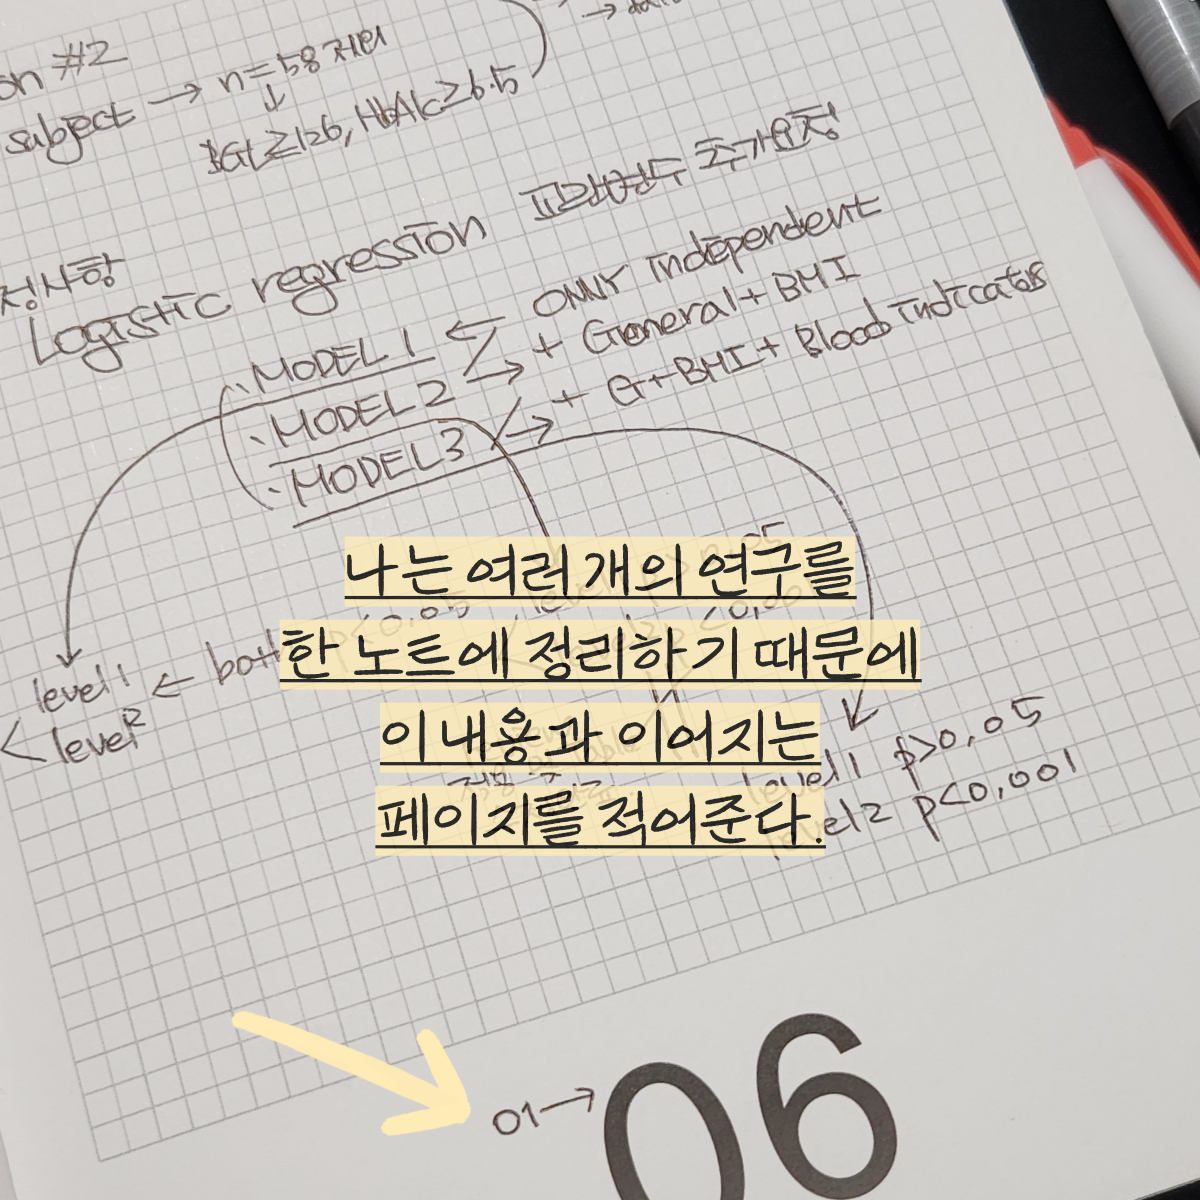 on #2
subject → n=58 제외
↓
≥126, HbA1c≥6.5
정사항
Logistic regression 교란변수 추가요청
· MODEL 1 ← ONLY independent
· MODEL 2 → + General + BMI
· MODEL 3 → + G+BMI+ Blood indicators
나는 여러 개의 연구를
한 노트에 정리하기 때문에
이 내용과 이어지는
페이지를 적어준다.
level1 ← both p<0.05
< level2
level1 p>0.05
level2 p<0.001
01→ 06